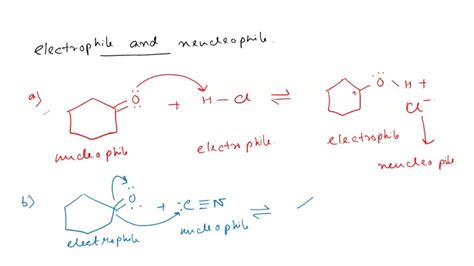 electrophile and neucleophile.
a) O + H - Cl ⇌ O H +
Cl-
nucleophile electrophile electrophile
neucleophile
b) O + :C≡N ⇌
electrophile nucleophile